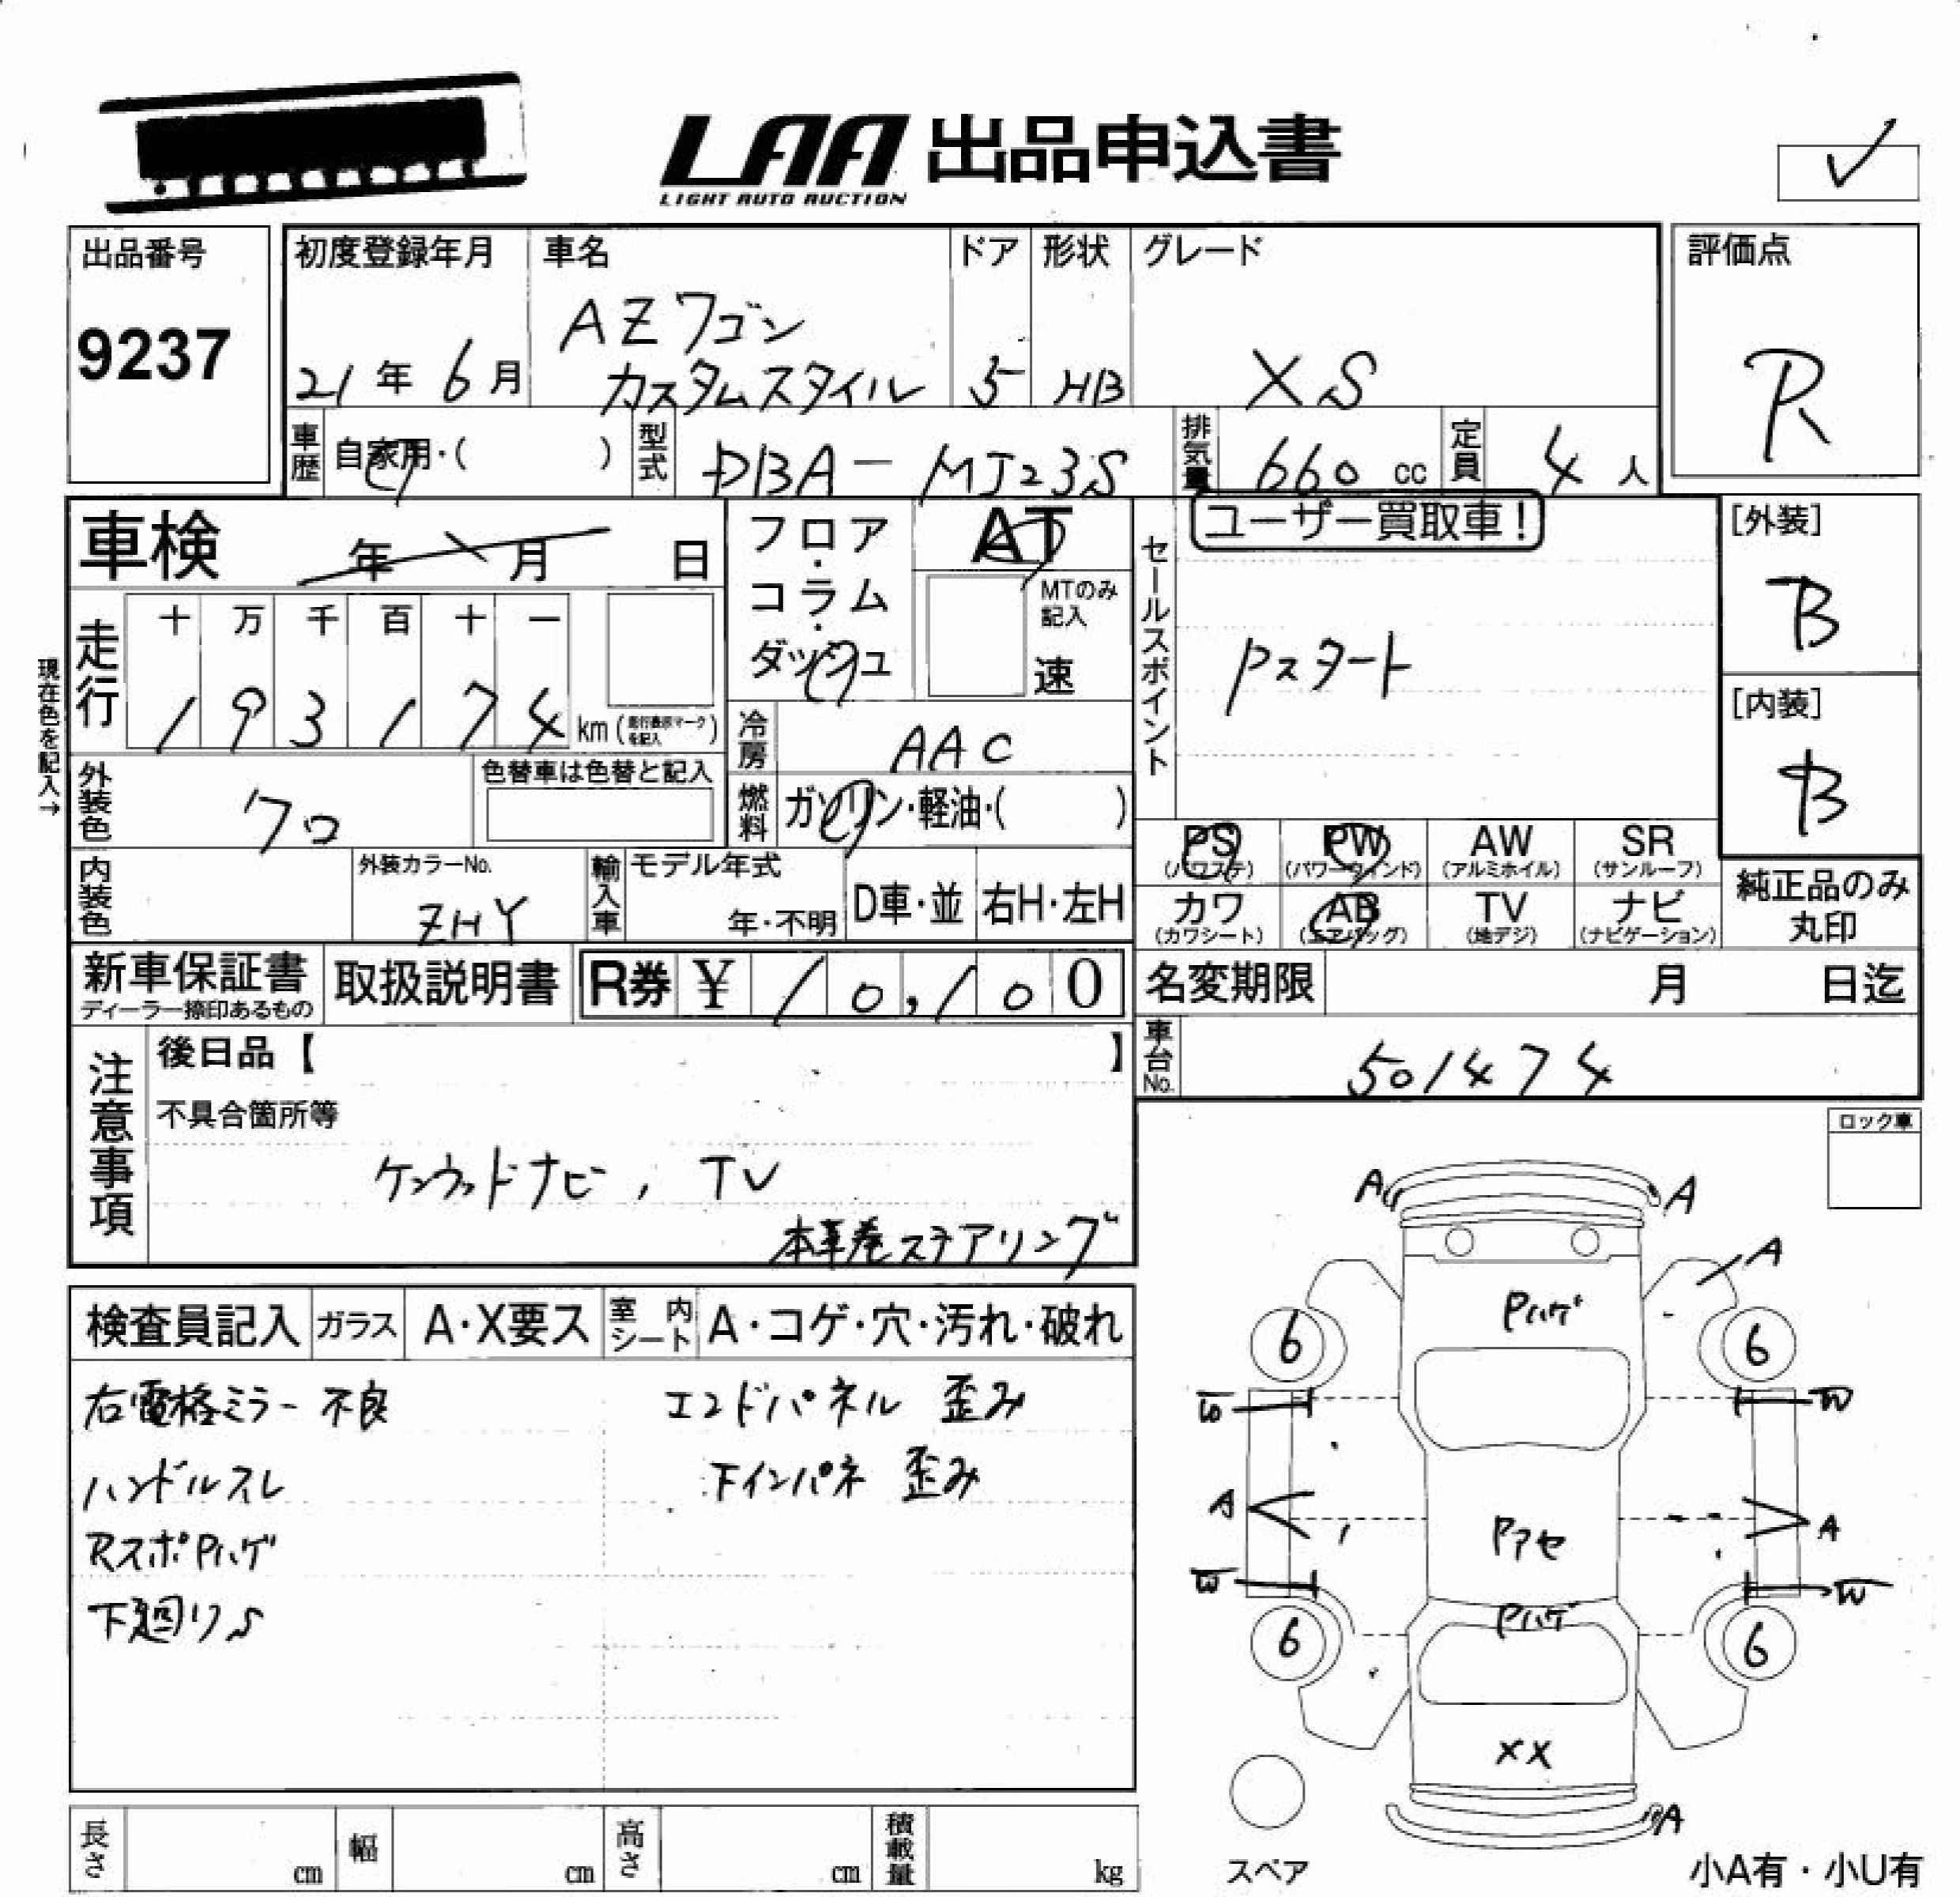 LAA 出品申込書
LIGHT AUTO AUCTION
出品番号
9237
初度登録年月
21年 6月
車名
AZワゴン
カスタムスタイル
ドア
5
形状
HB
グレード
XS
評価点
R
車歴
自家用・( )
型式
DBA-MJ23S
排気量
660 cc
定員
4 人
車検 年 月 日
フロア・コラム・ダッシュ
AT
MTのみ記入
速
セールスポイント
ユーザー買取車!
Pスタート
[外装]
B
[内装]
B
現在色を記入→
走行
十 万 千 百 十 一
1 9 3 1 7 4 km (走行表示マークを記入)
冷房
AAC
外装色
クロ
色替車は色替と記入
燃料
ガソリン・軽油・( )
PS (パワステ)
PW (パワーウインド)
AW (アルミホイル)
SR (サンルーフ)
カワ (カワシート)
AB (エアバッグ)
TV (地デジ)
ナビ (ナビゲーション)
純正品のみ
丸印
内装色
外装カラーNo.
ZHY
輸入車
モデル年式
年・不明
D車・並
右H・左H
新車保証書
ディーラー捺印あるもの
取扱説明書
R券 ¥ 10,100
名変期限 月 日迄
車台No.
501474
注意事項
後日品【 】
不具合箇所等
ケンウッドナビ, TV
本革巻ステアリング
ロック車
検査員記入
ガラス
A・X要ス
室内シート
A・コゲ・穴・汚れ・破れ
右電格ミラー不良
ハンドルスレ
RスポPハゲ
下廻りS
エンドパネル 歪み
下インパネ 歪み
A A
A
Pハゲ
6 6
W W
A A
Pアセ
W W
Pハゲ
6 6
XX
A
スペア
小A有・小U有
長さ cm
幅 cm
高さ cm
積載量 kg